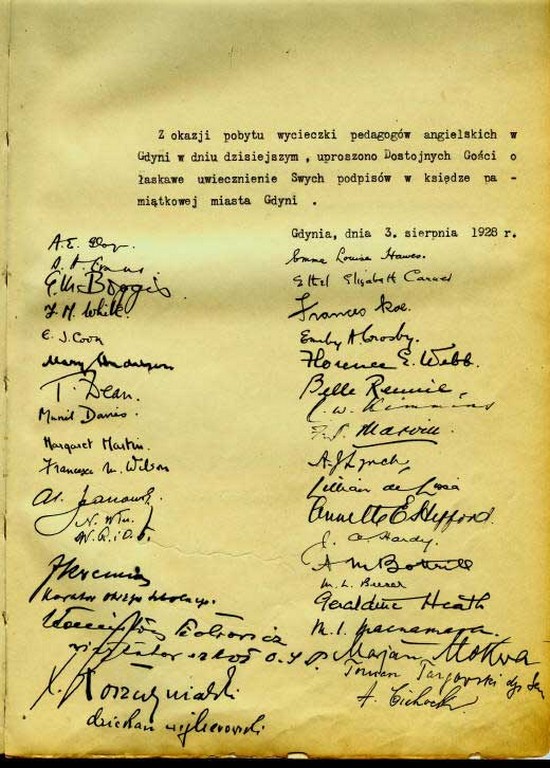 Z okazji pobytu wycieczki pedagogów angielskich w
Gdyni w dniu dzisiejszym , uproszono Dostojnych Gości o
łaskawe uwiecznienie Swych podpisów w księdze pa -
miątkowej miasta Gdyni .
Gdynia, dnia 3. sierpnia 1928 r.
A. E.
G.M. Boggis
F. M. White.
E. J. Coon
Mary Anderson
T. Dean.
Muriel Davies.
Margaret Martin.
Francesca M. Wilson
Al. Janowski
N. Wiz.
W. R. i O. P.
Kurator Okręgu Szkolnego.
wizytator szkół O. S. P.
X.
dziekan wejherowski
Emma Louise Hawes.
Ethel Elizabeth
Frances Roe.
Emily A Crosby.
Florence E. Webb.
Belle Rennie,
C. W. Kimmins
F. S. Marvin.
A. J. Lynch
Lillian de Lissa
Annette E. Hefford.
J. A. Hardy.
A M Bottrill
M. L.
Geraldine Heath
M. I. Macnamara.
Marjan Mokwa
Targowski
A. Cichocki